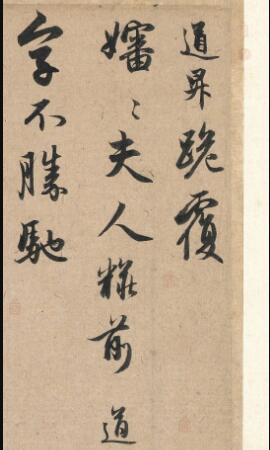 道昇跪覆
嬸〻夫人粧前道
字不勝馳